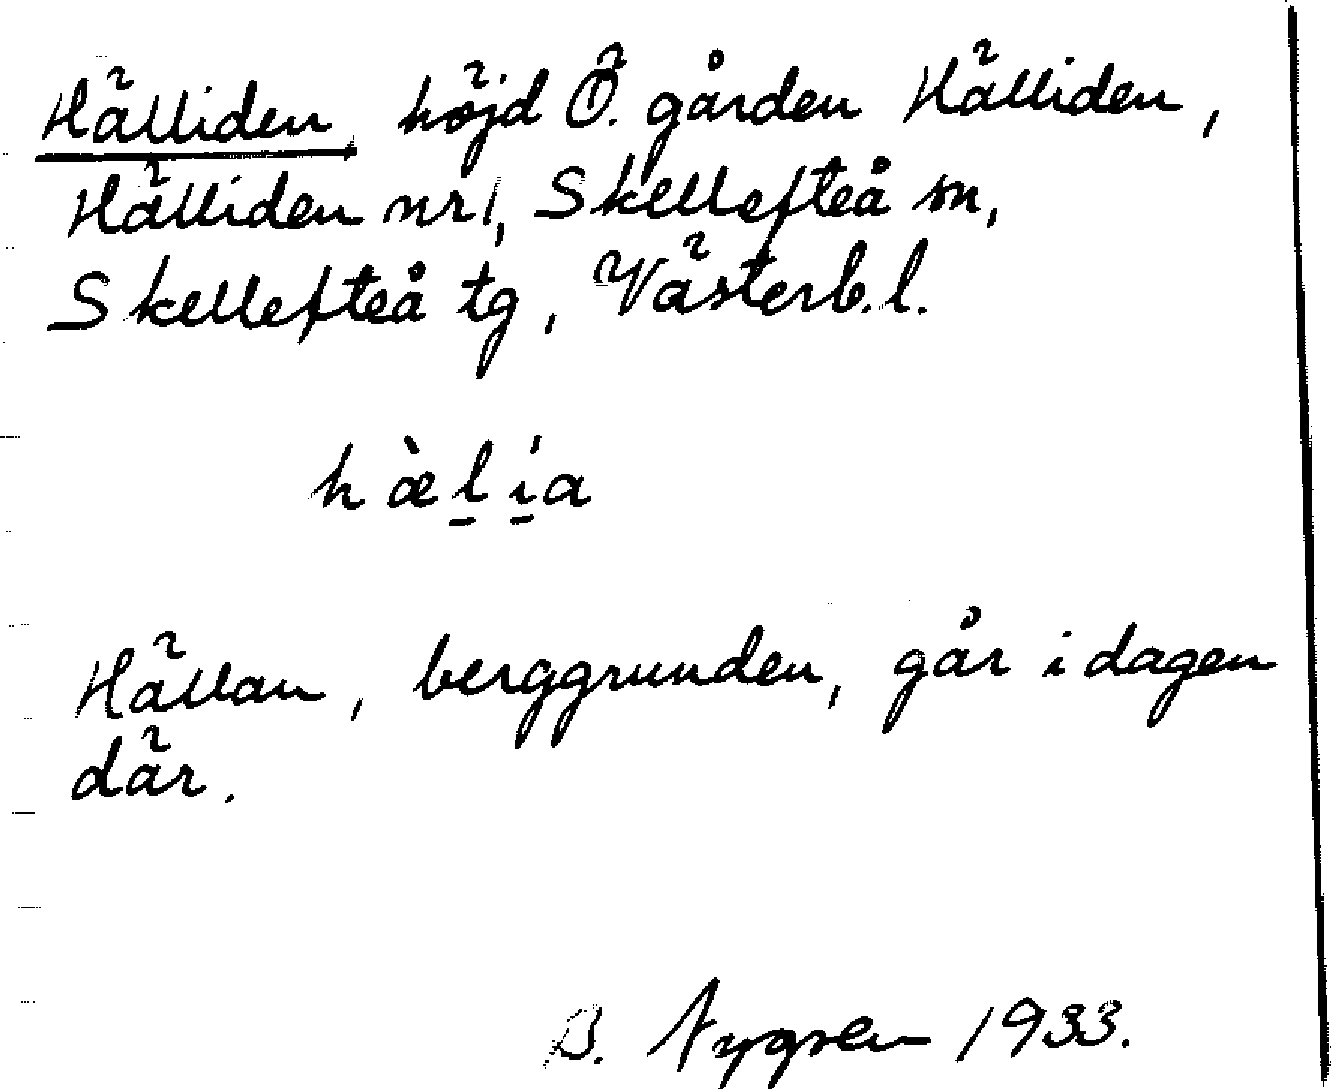 Hälliden, höjd Ö. gården Hälliden,
Hälliden nr 1, Skellefteå sn,
Skellefteå tg, Västerb. l.
hæ̀l̠í̠a
Hällan, berggrunden, går i dagen
där.
B. Nygren 1933.